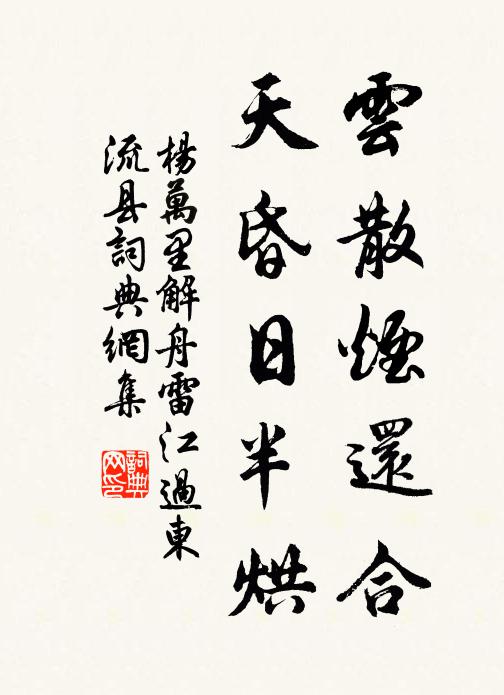 雲散煙還合
天昏日半烘
楊萬里解舟雷江過東
流县詞典網集
詞典
网印